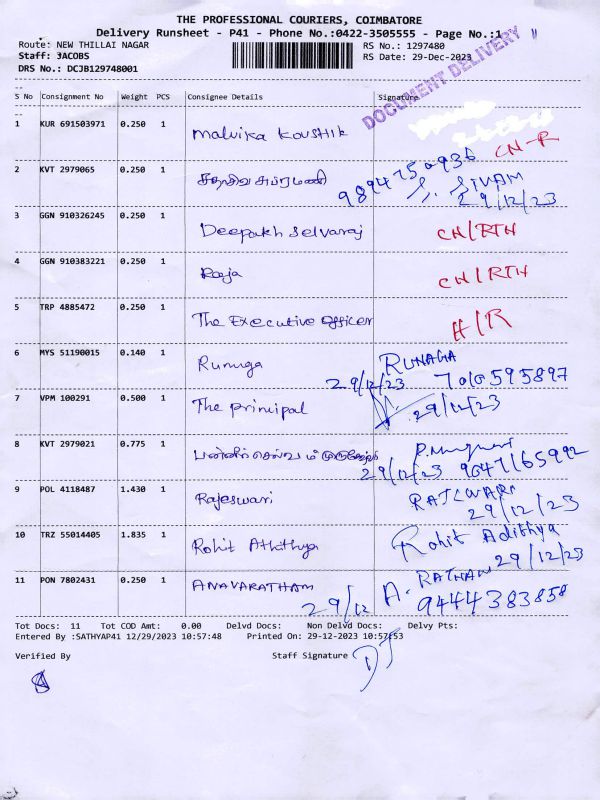 THE PROFESSIONAL COURIERS, COIMBATORE
Delivery Runsheet - P41 - Phone No.:0422-3505555 - Page No.:1
Route: NEW THILLAI NAGAR RS No.: 1297480
Staff: 3ACOBS RS Date: 29-Dec-2023
DRS No.: DCJB129748001
DOCUMENT DELIVERY
S No Consignment No Weight PCS Consignee Details Signature
1 KUR 691503971 0.250 1 Malvika Koushik CN-R
2 KVT 2979065 0.250 1 9894750936 S. SIVAM 29/12/23
3 GGN 910326245 0.250 1 Deepakh Selvaraj CN/RTN
4 GGN 910383221 0.250 1 Raja CN/RTN
5 TRP 4885472 0.250 1 The Executive Officer H/R
6 MYS 51190015 0.140 1 Runuga RUNAGA
29/12/23 7010595897
7 VPM 100291 0.500 1 The principal 29/12/23
8 KVT 2979021 0.775 1 பன்னீர் செல்வம்
29/12/23 9047165992
9 POL 4118487 1.430 1 Rajeswari
29/12/23
10 TRZ 55014405 1.835 1 Rohit Athithya Rohit Adithya
29/12/23
11 PON 7802431 0.250 1 ANAVARATHAM A. RATHAN
29/12 9444383858
Tot Docs: 11 Tot COD Amt: 0.00 Delvd Docs: Non Delvd Docs: Delvy Pts:
Entered By :SATHYAP41 12/29/2023 10:57:48 Printed On: 29-12-2023 10:57:53
Verified By Staff Signature